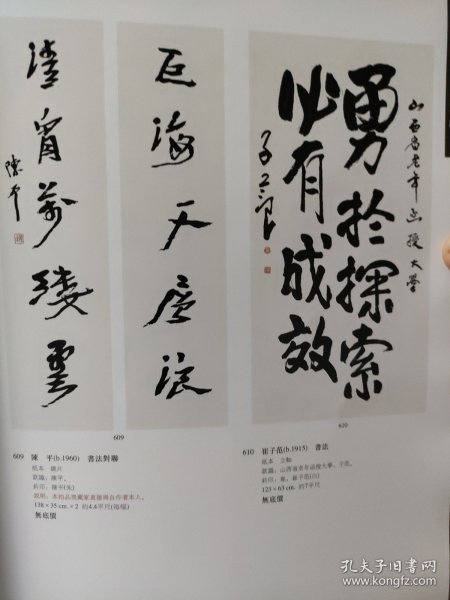 巨海千層浪
清宵萬縷雲
陳平
山西省老年函授大學
勇於探索
必有成效
子范
609
610
609 陳 平(b.1960) 書法對聯
紙本 鏡片
款識：陳平。
鈐印：陳平(朱)
說明：本拍品現藏家直接得自作者本人。
138×35 cm.×2 約4.4平尺(每幅)
無底價
610 崔子范(b.1915) 書法
紙本 立軸
款識：山西省老年函授大學，子范。
鈐印：崔、崔子范(白)
123×63 cm. 約7平尺
無底價
孔夫子旧书网
www.kongfz.com